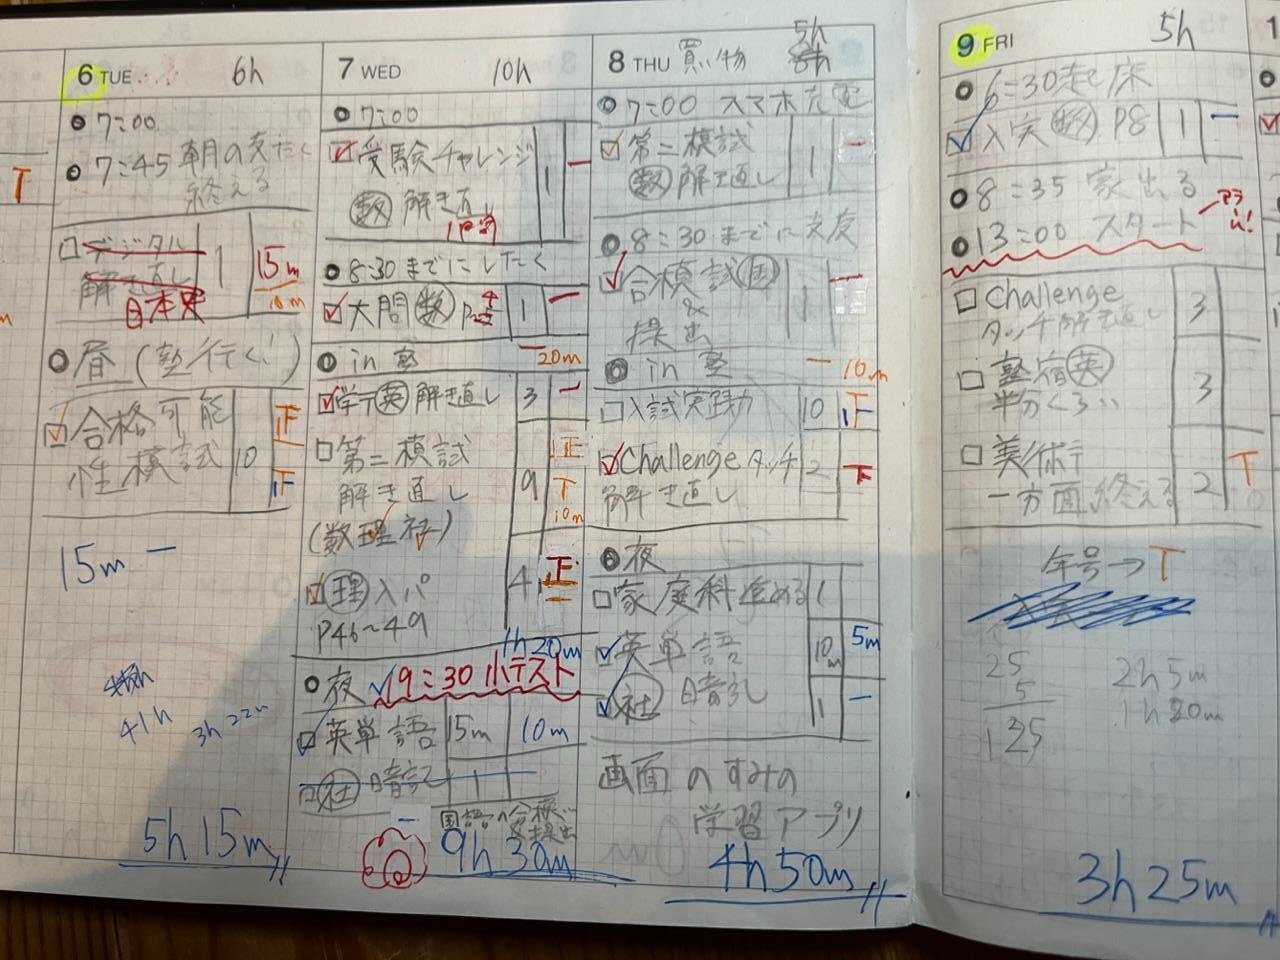 6 TUE 6h
7:00
7:45 朝の支たく
終える
デジタル 1 15m
解き直し 10m
日本史
昼(塾行く!)
合格可能 正
性模試 10 正
15m 一
41h 3h 22m
5h 15m
7 WED 10h
7:00
受験チャレンジ 1 一
数 解き直し
8:30までにしたく
大問 数 1 一
in 塾 一 20m
英 解き直し 3 一
第二模試 正
解き直し 9 T
10m
(数理社)
理 入パ 4 正
P46~49 一
1h 20m
夜 9:30 小テスト
英単語 15m 10m
社 暗記 1
一
9h 30m
8 THU 買い物 5h
7:00 スマホ充電
第二模試 1 一
数 解き直し
8:30までに支度
合模試 国 1 一
&
提出
in 塾 一 10m
入試実践力 10 正
Challengeタッチ 2 下
解き直し
夜
家庭科進める 1
英単語 10m 5m
社 暗記 1 一
画面のすみの
学習アプリ
4h 50m
9 FRI 5h
6:30起床
入実 数 P8 1 一
8:35 家出る
13:00 スタート
Challenge 3
タッチ解き直し
塾宿 英 3
半分くらい
美術テ T
一方面終える 2
年号→T
25
5
125
2h 5m
1h 20m
3h 25m
T
m